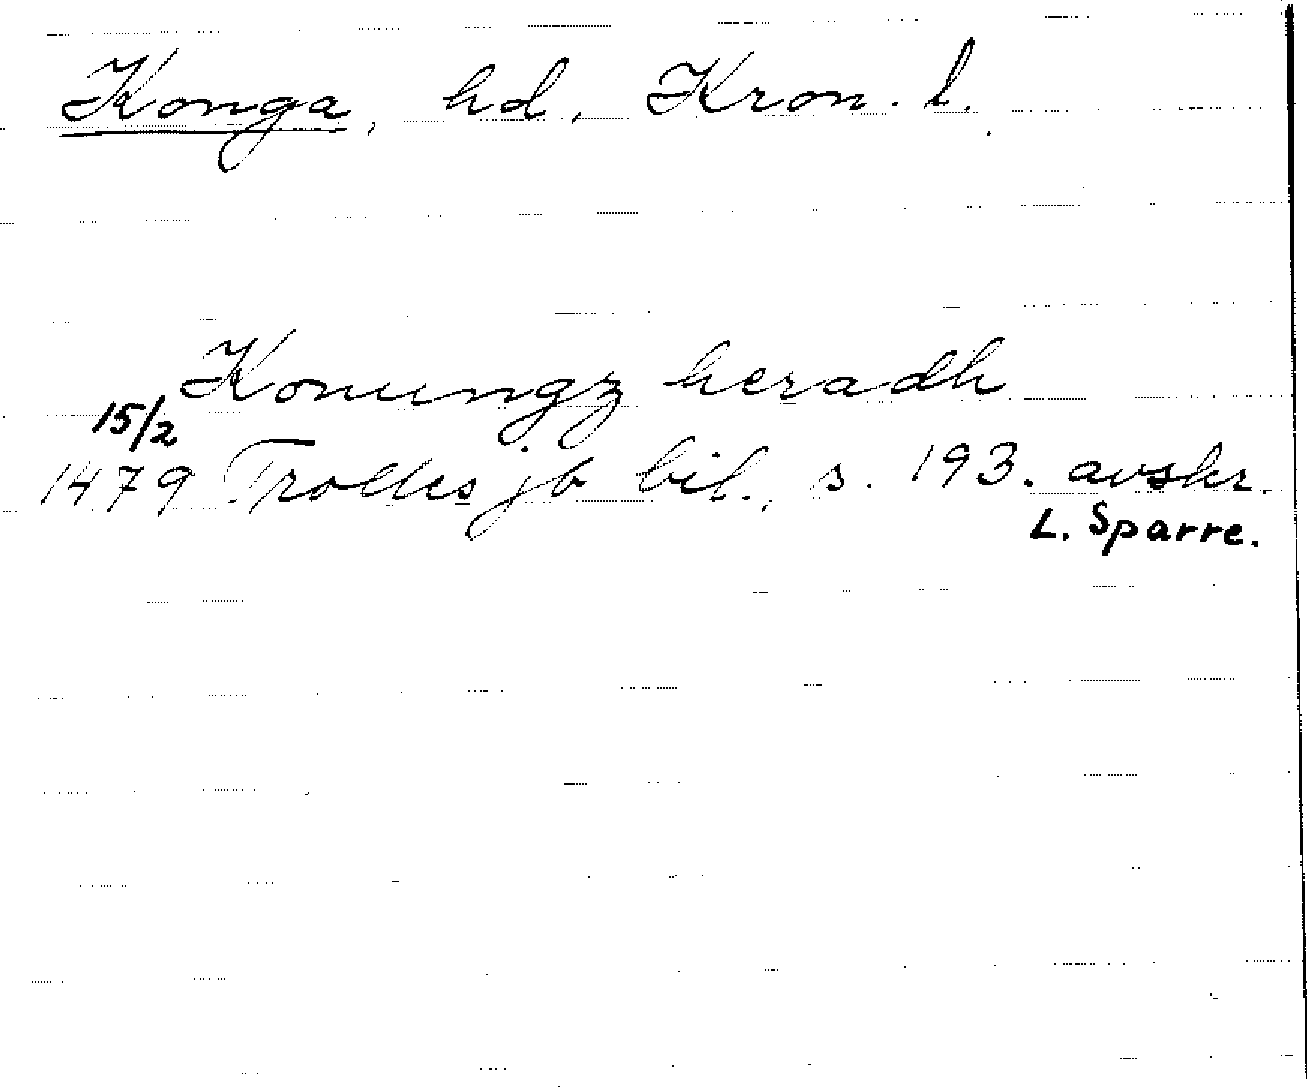 Konga, hd, Kron. l.
Konungz heradh
15/2
1479 Trolles jb bil., s. 193. avskr.
L. Sparre.